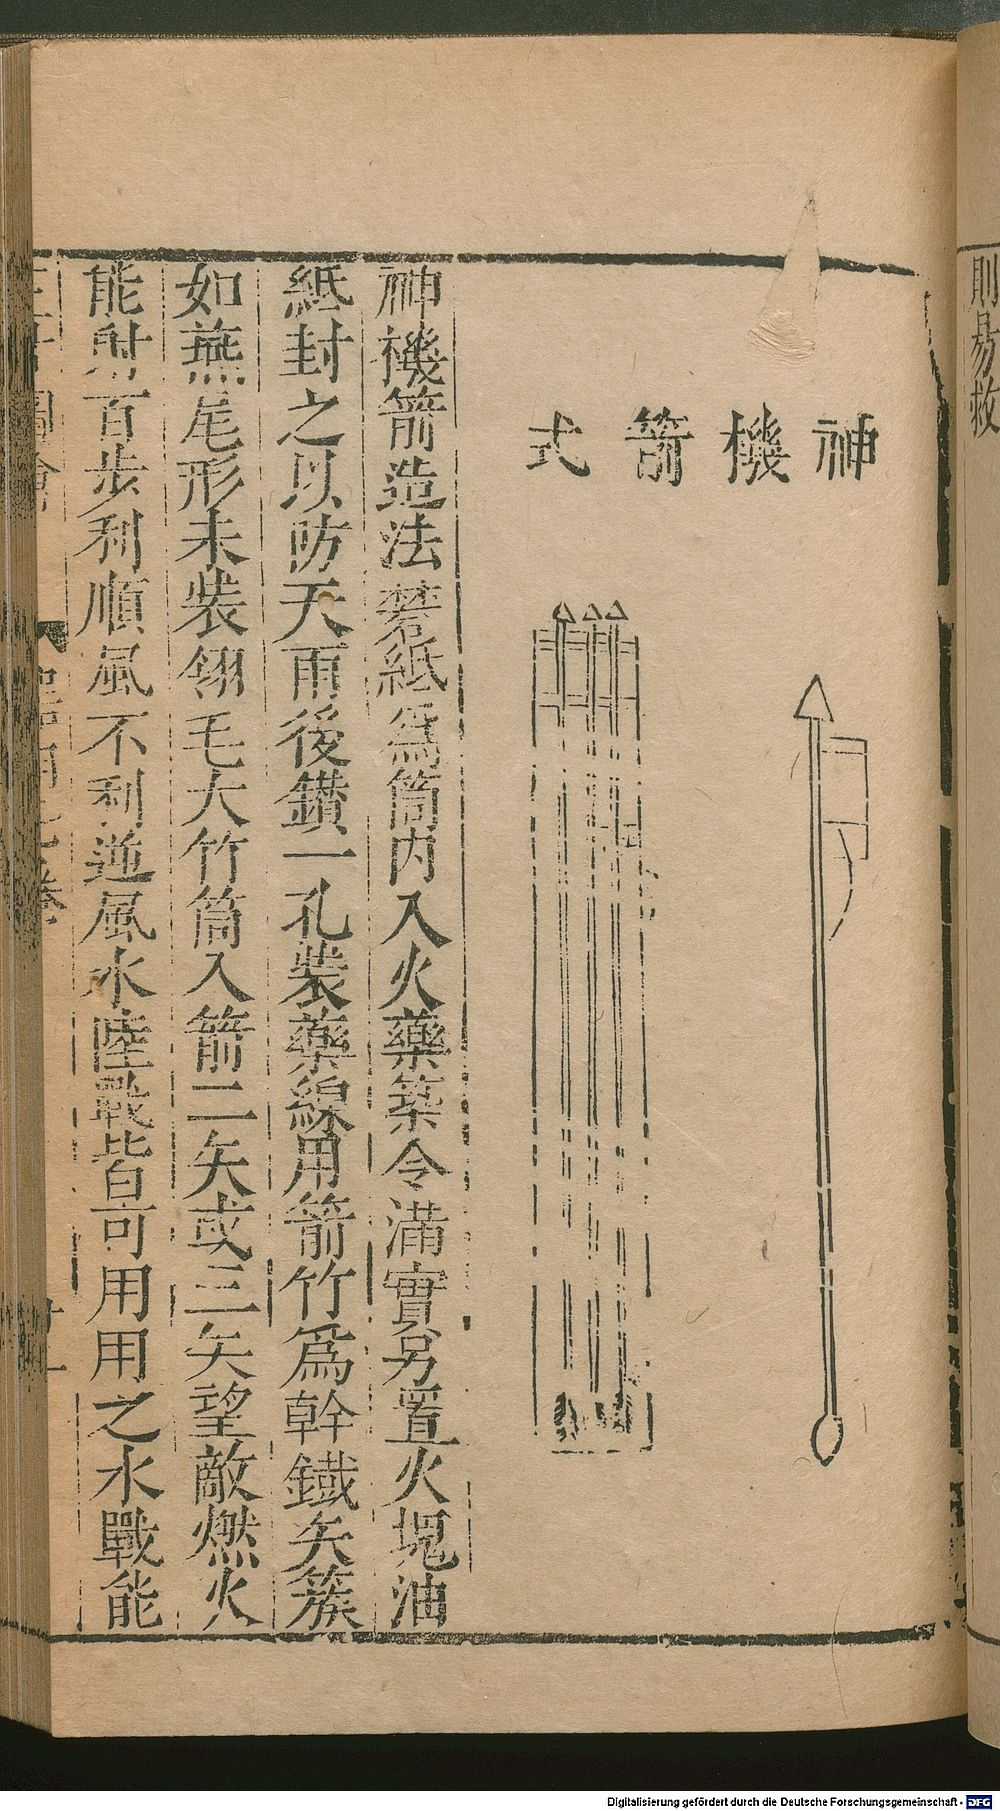 則易救
神機箭式
神機箭造法礬紙爲筒内入火藥築令滿實另置火塊油
紙封之以防天雨後鑚一孔裝藥線用箭竹爲幹鐵矢簇
如燕尾形末裝翎毛大竹筒入箭二矢或三矢望敵燃火
能射百步利順風不利逆風水陸戰皆可用用之水戰能
三才圖會
Digitalisierung gefördert durch die Deutsche Forschungsgemeinschaft - DFG